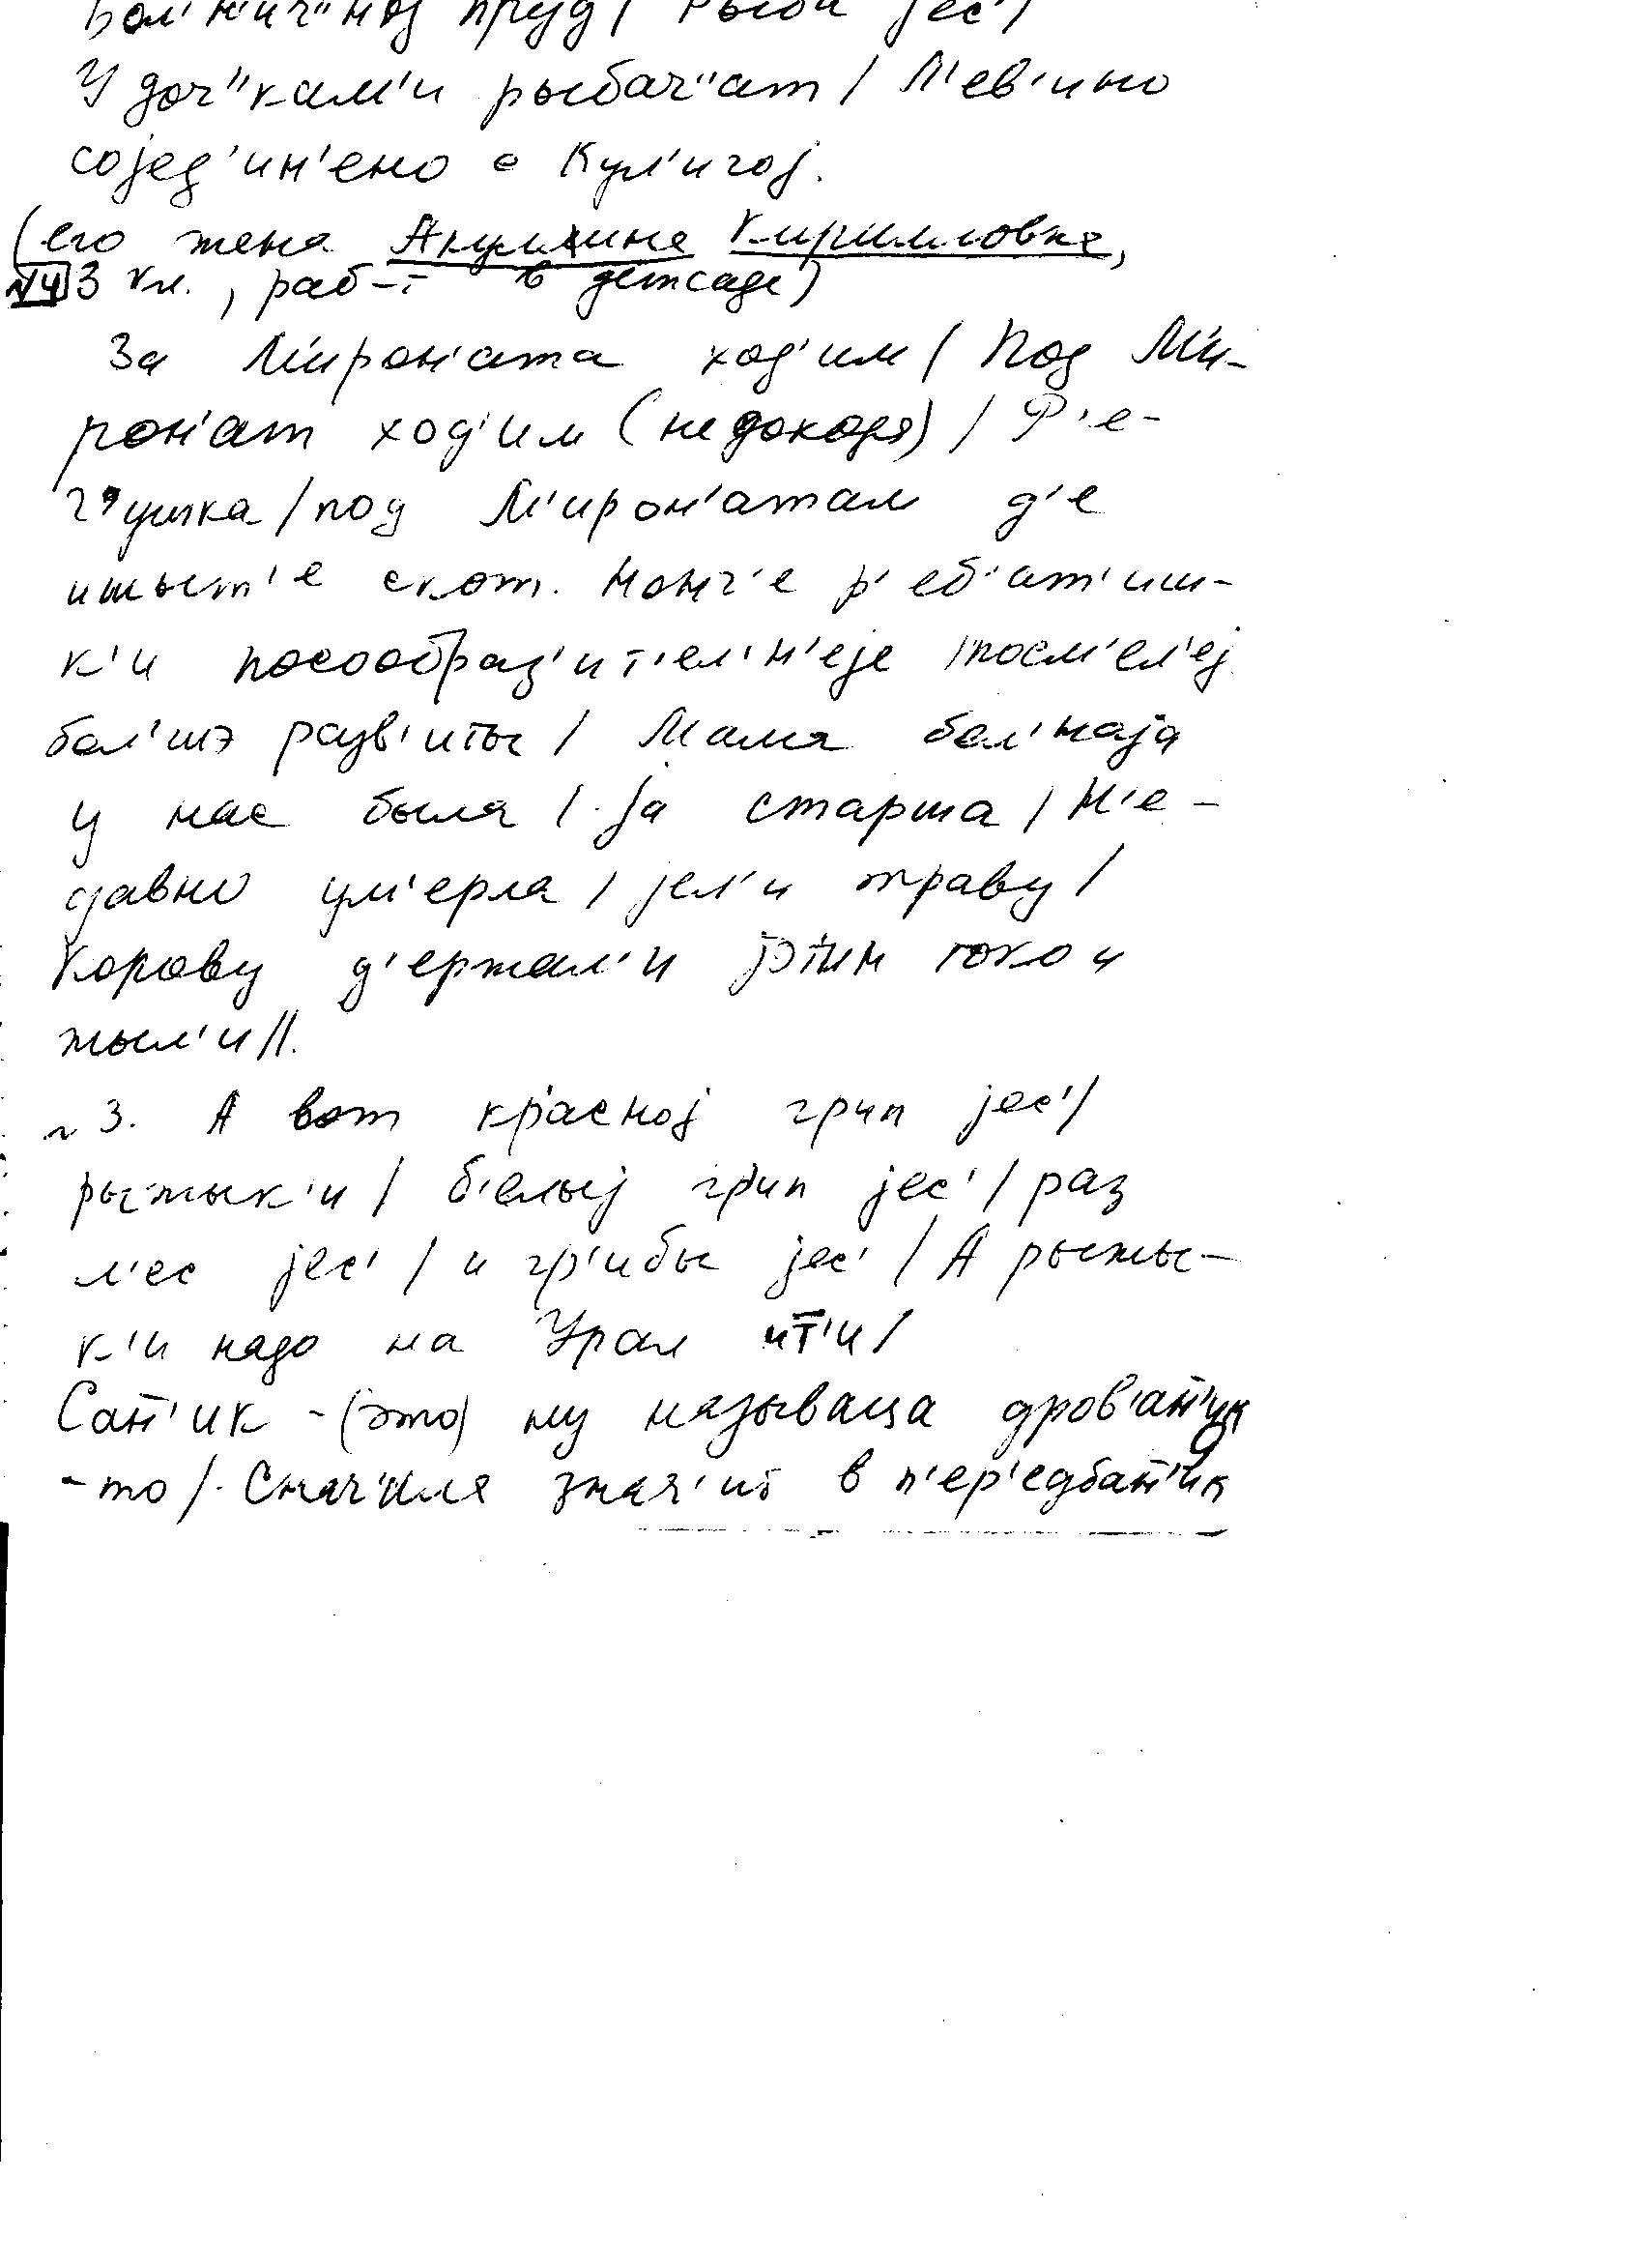 Бол'н'ич"ној пруд / Рыба јес' /
Удоч"кам'и рыбач"ат / Л'ев'ино
сојед'ин'ено с Кул'игој.
(его жена Акулина Кирилловна,
№4 3 кл., раб-т в детсаде)
За М'ирон'ата ход'им / Под М'и-
рон'ат ход'им (не доходя) / Р'е-
ч'ушка / под М'ирон'атам д'е
ишыт'е скот. Нонч'е р'еб'ат'иш-
к'и посообраз'ит'ел'н'еје / посм'ел'еј
бол'шэ разв'иты / Мама бол'наја
у нас была / ја старша / Н'е-
давно ум'ерла / јел'и траву /
Корову д'ержал'и јэтим токо и
жыл'и //.
~3. А вот красној грип јес' /
рыжык'и / б'елыј гр'ип јес' / раз
л'ес јес' / и гр'ибы јес' / А рыжы-
к'и надо на Урал ит'и /
Сан'ик - (это) ну называца дров'ан'ик
-то / Снач'ала знач'ит в п'ер'едбан'ик